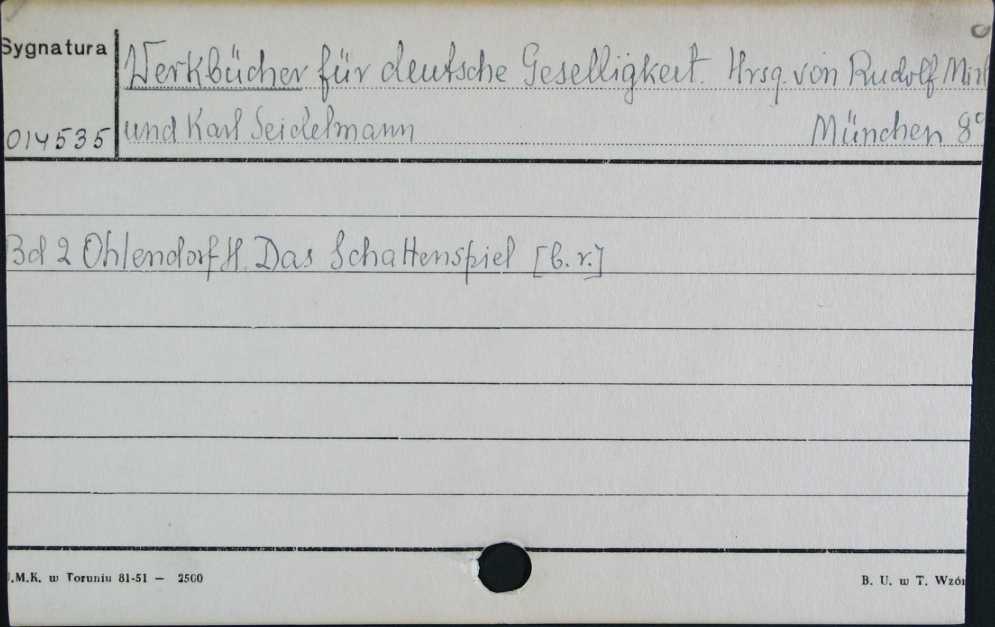 Sygnatura
Werkbücher für deutsche Geselligkeit. Hrsg. von Rudolf
014535
und Karl Seidelmann München 8°
Bd 2 Ohlendorf H. Das Schattenspiel [b. r.]
.M.K. w Toruniu 81-51 — 2500
B. U. w T. Wzór